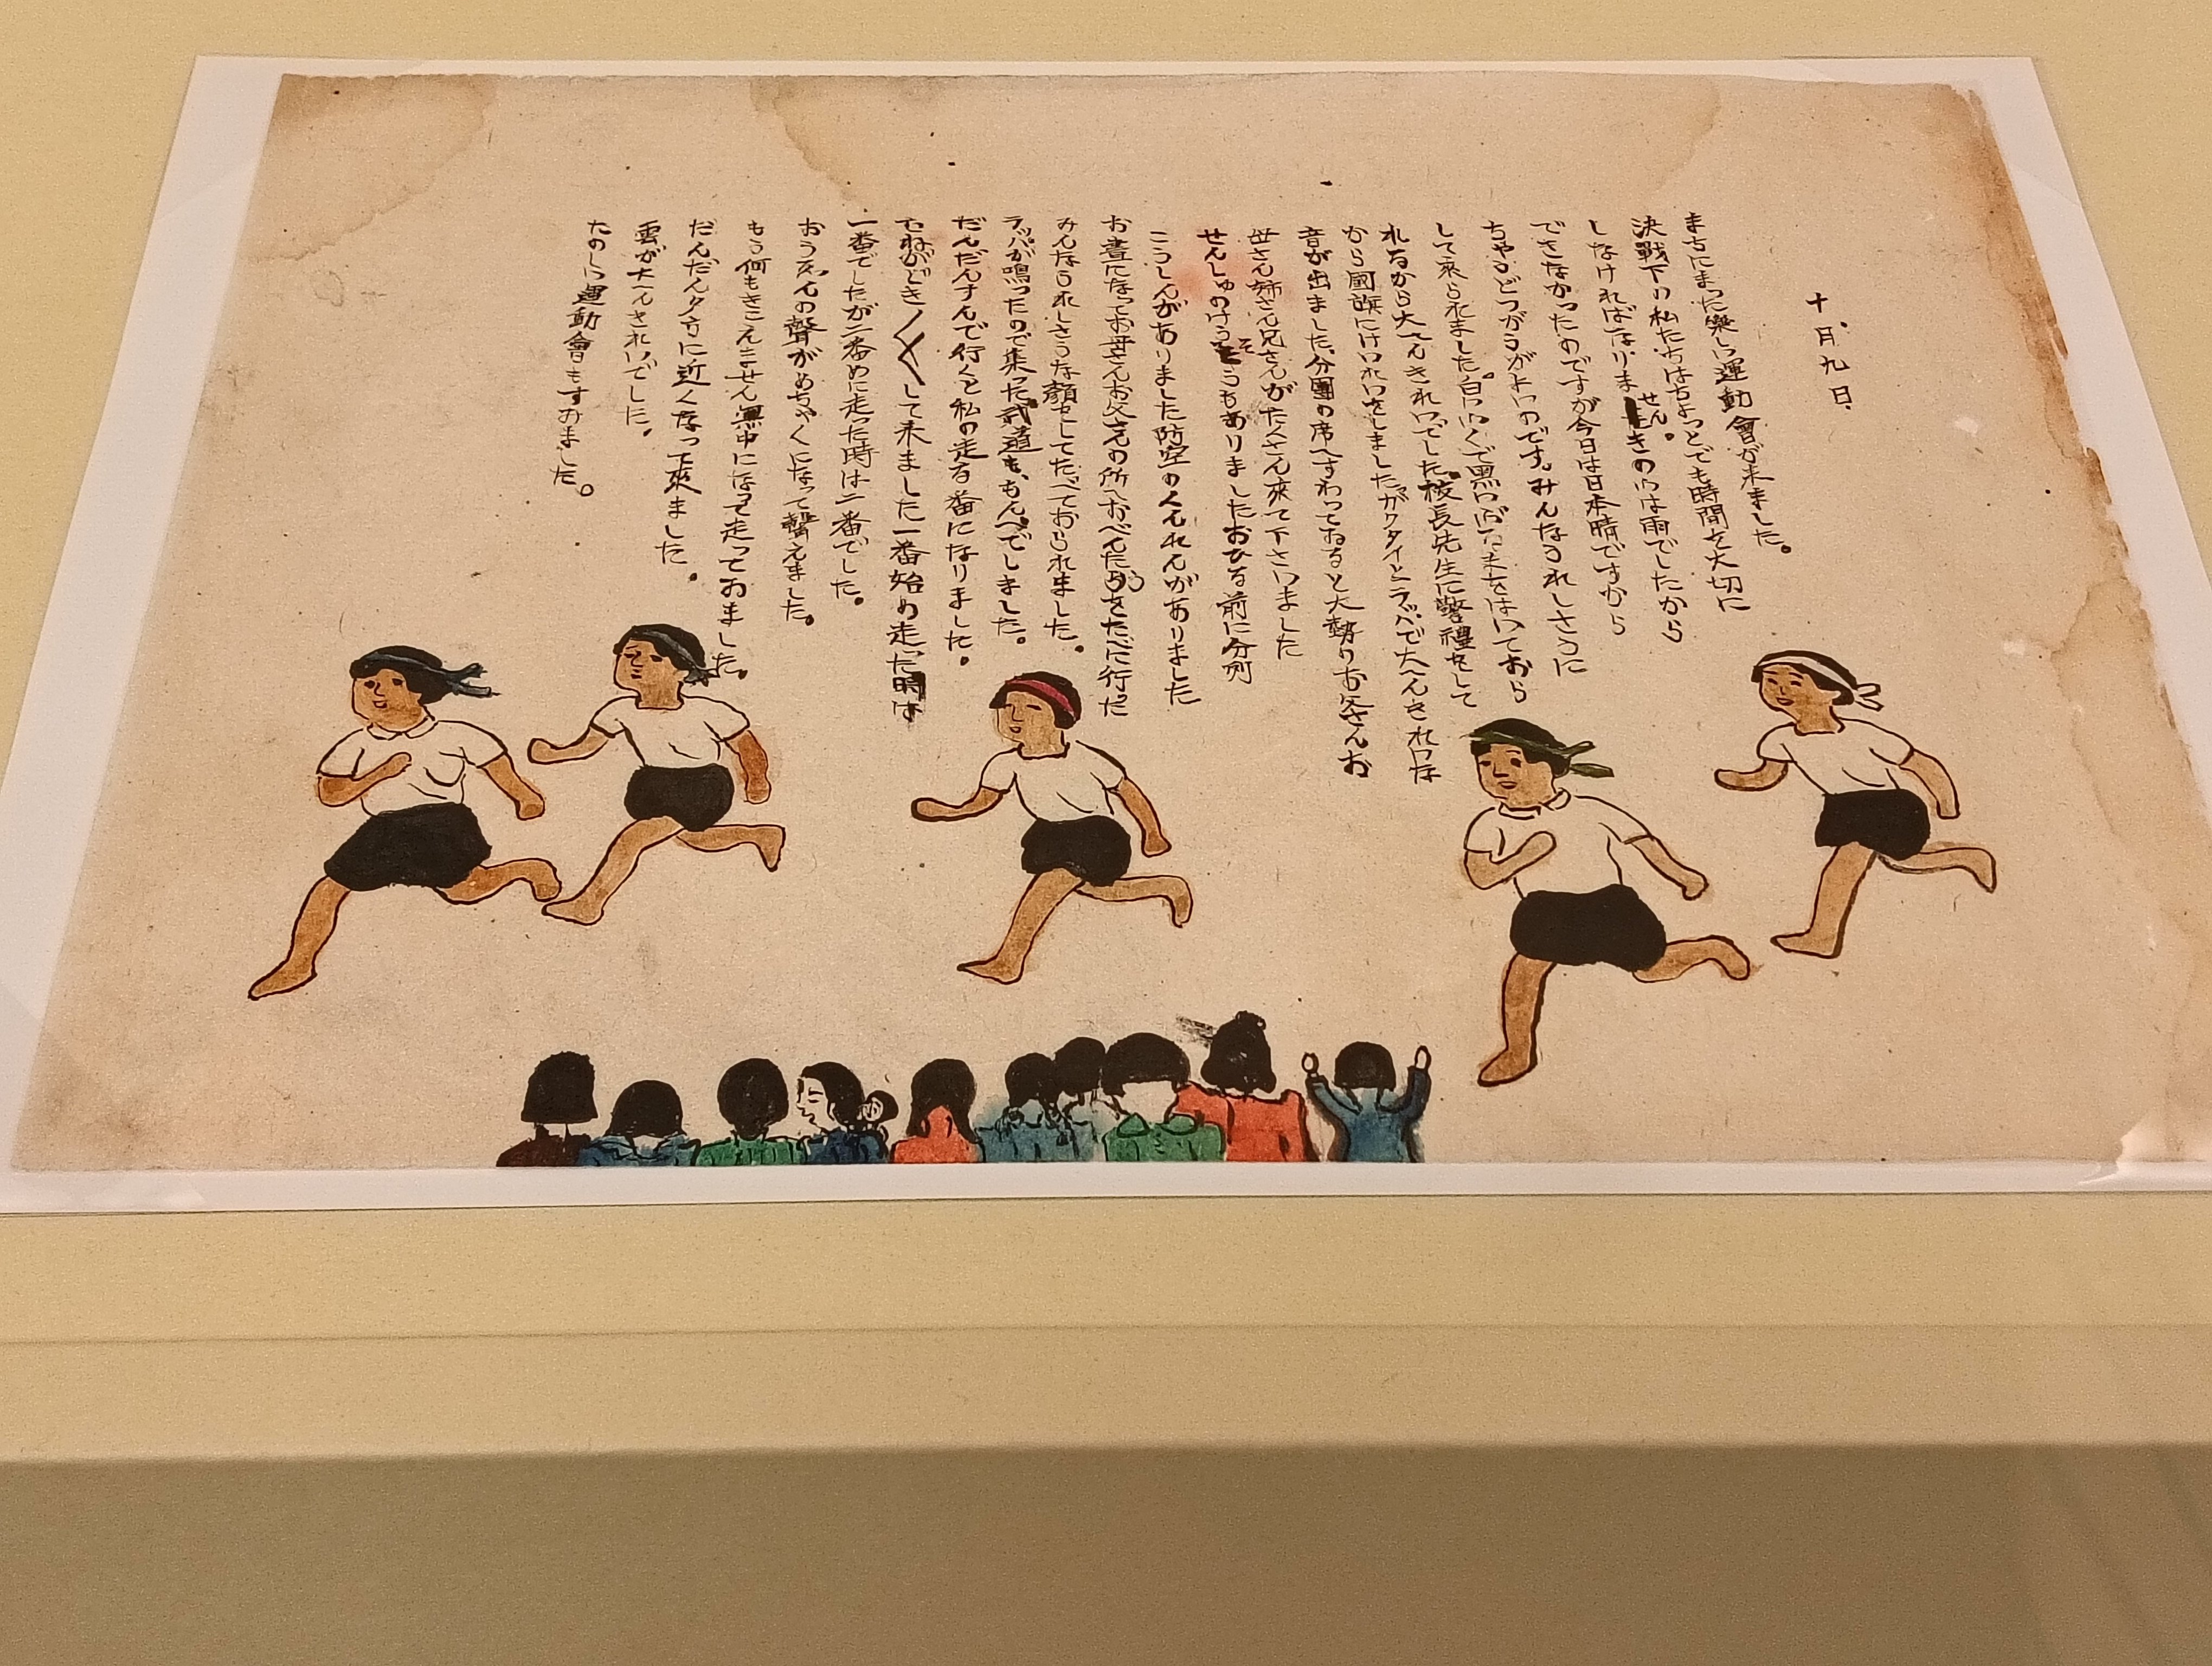 十月九日
まちにまった樂しい運動會が来ました。
決戰下の私たちはちょっとでも時間を大切に
しなければなりません。きのふは雨でしたから
できなかったのですが今日は日本晴ですから
ちゃうどつがうがよいのです。みんなうれしさうに
して来られました。白いふくで黒いパンツをはいておら
れるから大へんきれいでした。校長先生に敬禮をして
から國旗にけいれいをしましたがクタイとラッパで大へんきれいな
音が出ました。分團の席へすわってゐると大勢のお父さんお
母さん姉さん兄さんがたくさん來て下さいました
せんしゅのけうそうもありましたおひる前に分列
こうしんがありました防空のくんれんがありました
お晝になってお母さんお父さんの所へおべんたうをたべに行った
みんなうれしさうな顔をしてたべておられました。
ラッパが鳴ったので集った武道も、もんぺでしました。
だんだんすんで行くと私の走る番になりました。
むねがどき〱して来ました一番始の走った時は
一番でしたが二番めに走った時は二番でした。
おうえんの聲がめちゃくになって聲えました。
もう何もきこえません無中になって走っておました。
だんだん夕方に近くなって來ました。
雲が大へんきれいでした。
たのしい運動會もすみました。